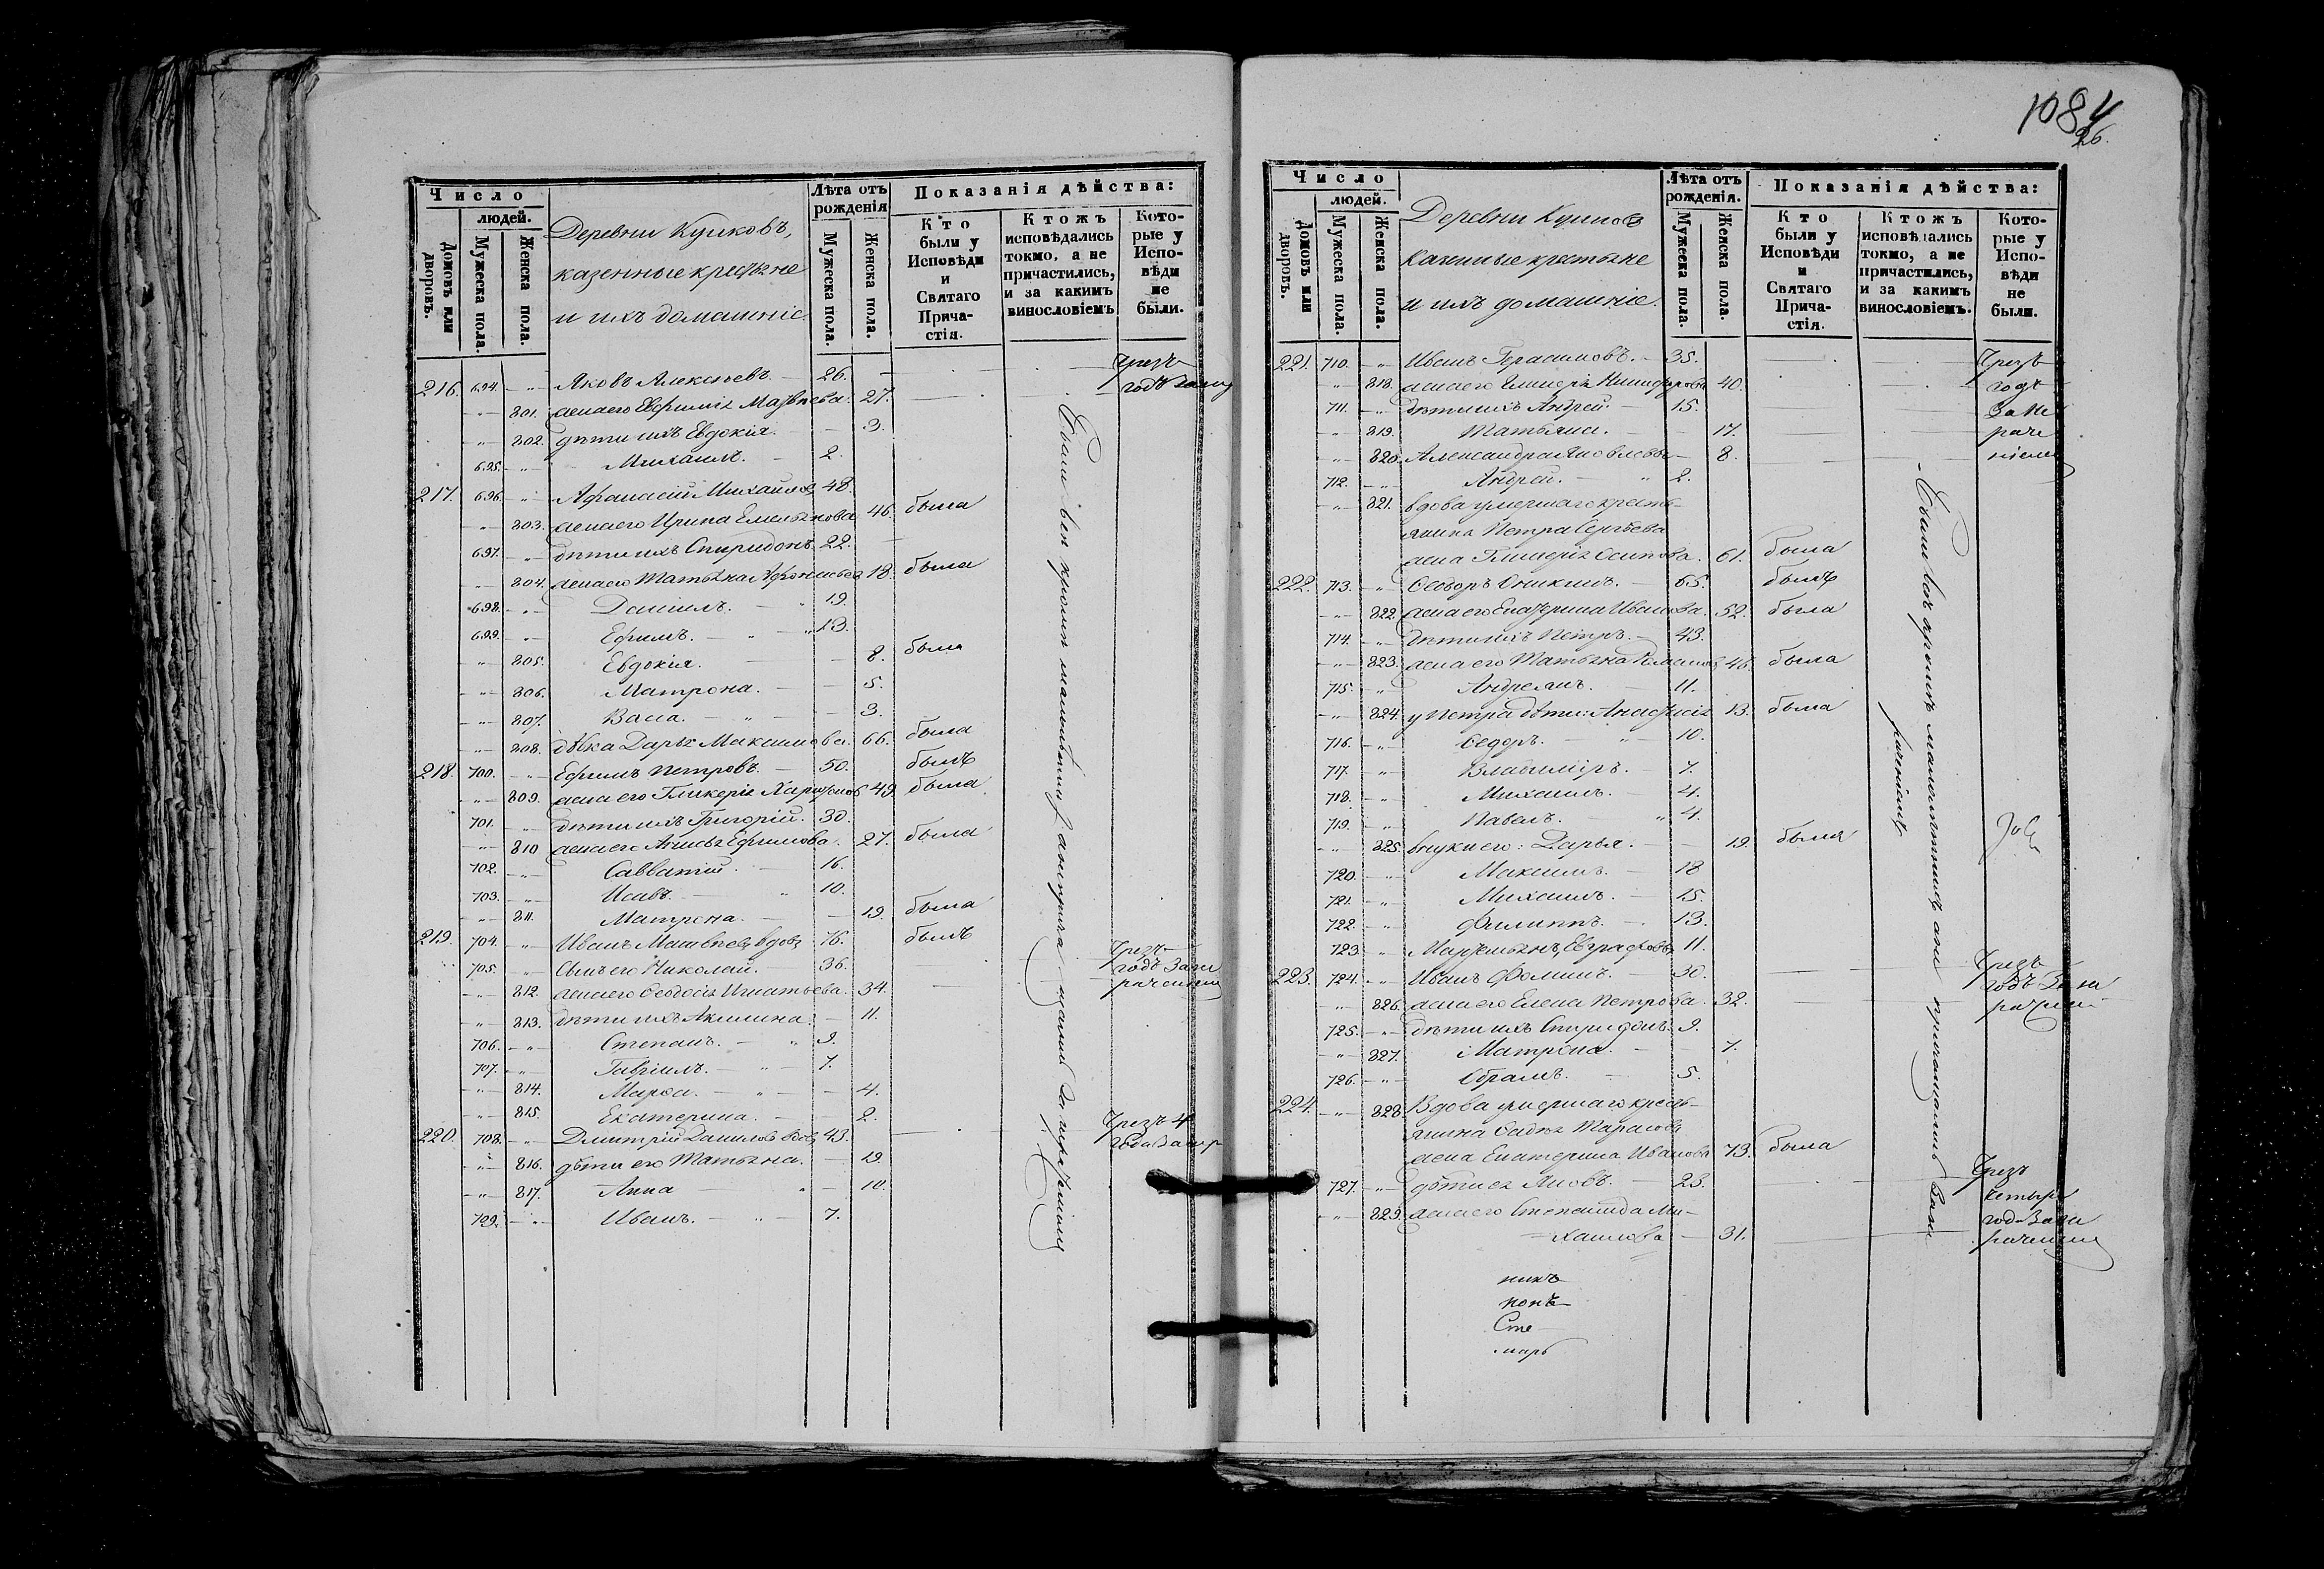 Число
людей.
Домовъ или дворовъ.
Мужеска пола.
Женска пола.
Деревни Куликовъ,
казенные крестьяне
и ихъ домашніе.
Лѣта отъ
рожденія
Мужеска пола.
Женска пола.
Показанія дѣйства:
Кто
были у
Исповѣди
и
Святаго
Прича-
стія.
Ктожъ
исповѣдались
токмо, а не
причастились,
и за какимъ
винословіемъ
Кото-
рые у
Испо-
вѣди
не
были.
216. 694. Яковъ Алексѣевъ. 26. Чрезъ
801. жена его Евфимія Матвѣева. 27. годъ
802. дѣти ихъ Евдокія. 3.
695. Михаилъ. 2.
217. 696. Афанасій Михайловъ 48.
803. жена его Ирина Емельянова 46. была
697. дѣти ихъ Спиридонъ. 22.
804. жена его Татьяна 18. была
698. Даніилъ. 19.
699. Ефимъ. 13.
805. Евдокія. 8. была
806. Матрона. 5.
807. Васса. 3.
808. дѣвка Дарья Максимова. 66. была
218. 700. Ефимъ Петровъ. 50. былъ
809. жена его Гликерія Харитонов 49. была
701. дѣти ихъ Григорій. 30.
810 жена его Анисья Ефимова. 27. была
702. Савватій. 16.
703. Исавъ. 10.
811. Матрона. 19. была
219. 704. Иванъ Матвѣевъ вдовъ 76. былъ
705. Сынъ его Николай. 36. Чрезъ годъ за не
812. жена его Ѳеодосія Игнатьева. 34. раченіемъ
813. дѣти ихъ Акилина. 11.
706. Степанъ. 9.
707. Гавріилъ. 7.
814. Марѳа. 4.
815. Екатерина. 2.
220. 708. Дмитрій Даниловъ вдовъ 43. Чрезъ 4
816. дѣти его Татьяна. 19. года за нер
817. Анна 10.
709. Иванъ. 7.
Были всѣ кромѣ малолѣтнихъ за нерачені
1084
26.
Число
людей.
Домовъ или дворовъ.
Мужеска пола.
Женска пола.
Деревни Куликовъ
казенные крестьяне
и ихъ домашніе.
Лѣта отъ
рожденія.
Мужеска пола.
Женска пола.
Показанія дѣйства:
Кто
были у
Исповѣди
и
Святаго
Прича-
стія.
Ктожъ
исповѣдались
токмо, а не
причастились,
и за какимъ
винословіемъ.
Кото-
рые у
Испо-
вѣди
не
были.
221. 710. Иванъ Герасимовъ. 35. Чрезъ
818. жена его Гликерія Никифорова 40. годъ
711. дѣти ихъ Андрей. 15. за не
819. Татьяна. 17. раче
820. Александра Яковлева 8. ніемъ
712. Андрей. 2.
821. вдова умершаго кресть-
янина Петра Сергѣева
жена Гликерія Осипова. 61. была
222. 713. Ѳеодоръ Аникинъ. 65. былъ
822. жена его Екатерина Иванова. 52. была
714. дѣти ихъ Петръ. 43.
823. жена его Татьяна 46. была
715. Андреянъ. 11.
824. у Петра дѣти: Анастасія 13. была
716. Ѳедоръ. 10.
717. Владиміръ. 7.
718. Михаилъ. 4.
719. Павелъ. 4.
825. внуки его: Дарья. 19. была
720. Максимъ. 18
721. Михаилъ. 15.
722. Филиппъ. 13.
723. Мартемьянъ Евграфовъ 11.
223. 724. Иванъ Фоминъ. 30. Чрезъ
826. жена его Елена Петрова. 32. годъ за не
725. дѣти ихъ Спиридонъ. 9. рачені
827. Матрона. 7.
726. Абрамъ. 5.
224. 828. Вдова умершаго кресть-
янина Савы Тарасова
жена Екатерина Иванова 73. была
727. дѣти ея Яковъ. 23. Чрезъ
829. жена его Степанида Ми- четыре
хаилова 31. года за не
раченіемъ
Были всѣ кромѣ малолѣтнихъ
раченіемъ
никъ
попъ
Сте